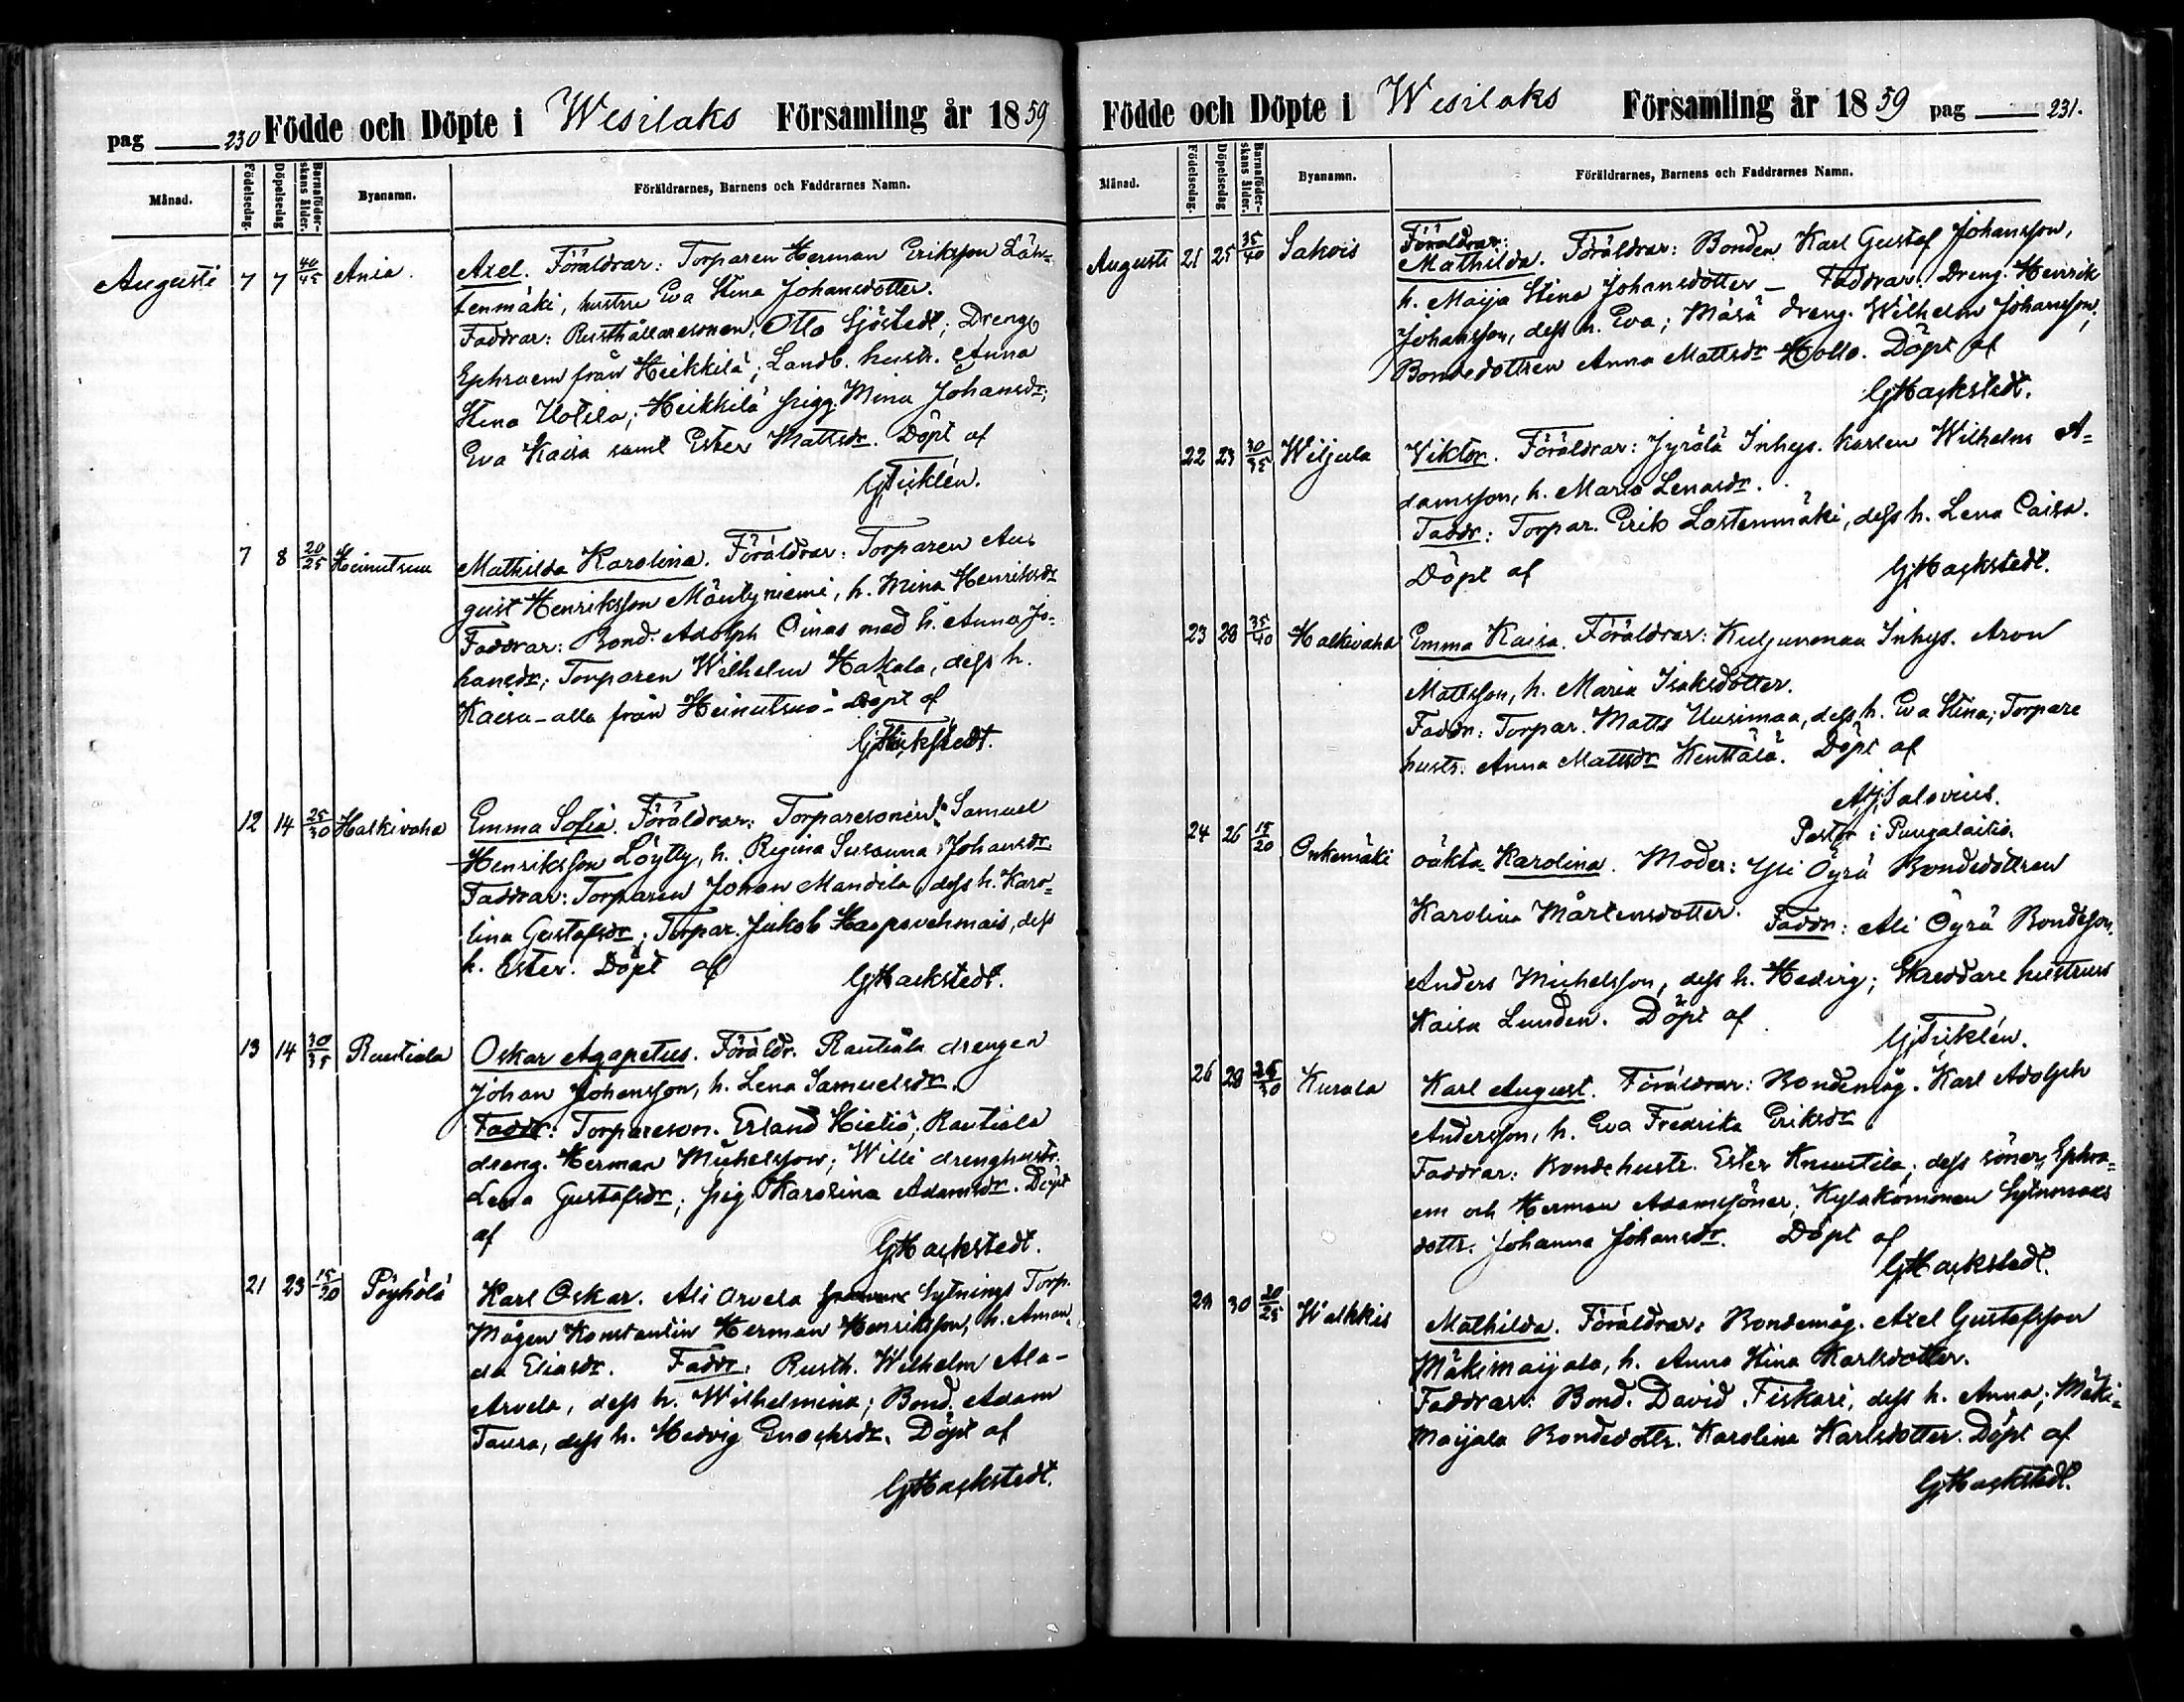 pag 230 Födde och Döpte i Wesilaks Församling år 1859
Månad. Födelsedag. Döpelsedag Barnaföderskans ålder. Byanamn. Föräldrarnes, Barnens och Faddrarnes Namn.
Augusti 7 7 40/45 Ania. Axel. Föräldrar: Torparen Herman Eriksson Läh=
tenmäki, hustru Eva Stina Johansdotter.
Faddrar: Rusthållaresonen, Otto Sjöstedt; Dreng
Ephraem från Heikkilä; Landb. hustr. Anna
Stina Uotila; Heikkilä pigg. Mina Johansdr;
Eva Kaisa samt Ester Mattsdr. Döpt af
G Fisklén.
7 8 20/25 Heinutsuu Mathilda Karolina. Föräldrar: Torparen Au=
gust Henriksson Mäntyniemi, h. Mina Henriksdr
Faddrar: Bond. Adolph Oinas med h. Anna Jo=
hansdr; Torparen Wilhelm Hakala, dess h.
Kaisa - alla från Heinutsuo - Döpt af
G Hackstedt.
12 14 25/30 Halkivaha Emma Sofia. Föräldrar: Torparesonen Samuel
Henriksson Löytty, h. Regina Susanna Johansdr.
Faddrar: Torparen Johan Mandila, dess h. Karo=
lina Gustafsdr; Torpar. Jakob Haapavehmais, dess
h. Ester. Döpt af
G Hackstedt.
13 14 30/35 Rautiala Oskar Agapetus. Föräldr. Rautiala drengen
Johan Johansson, h. Lena Samuelsdr.
Faddr: Torpareson. Erland Hietiö; Rautiala
dreng. Herman Michelsson; Willi drenghustr.
Lena Gustafsdr; pig. Karolina Adamsdr. Döpt
af
G Hackstedt.
21 23 15/30 Pöyhölä Karl Oskar. Ali Arvela Sytnings Torp.
Mågen Konstantin Herman Henriksson, h. Aman
da Eliasdr. Faddr: Rusth. Wilhelm Ala-
Arvela, dess h. Wilhelmina; Bond. Adam
Taura, dess h. Hedvig Enocksdr. Döpt af
G Hackstedt.
Födde och Döpte i Wesilaks Församling år 1859 pag 231.
Månad. Födelsedag. Döpelsedag Barnaföderskans ålder. Byanamn. Föräldrarnes, Barnens och Faddrarnes Namn.
Föräldrar:
Augusti 21 25 35/40 Sakois Mathilda. Föräldrar: Bonden Karl Gustaf Johansson,
h. Maija Stina Johansdotter - Faddrar: Dreng. Henrik
Johansson, dess h. Eva; Mäsä dreng. Wilhelm Johansson;
Bondedottren Anna Mattsdr Hollo. Döpt af
G Hackstedt.
22 23 30/35 Wiljula Viktor. Föräldrar: Jyrälä Inhys. karlen Wilhelm A=
damsson, h. Maria Lenasdr.
Faddr: Torpar. Erik Lastenmäki, dess h. Lena Caisa.
Döpt af G Hackstedt.
23 29 35/40 Halkivaha Emma Kaisa. Föräldrar: Kuljunmaa Inhys. Aron
Mattsson, h. Maria Isaksdotter.
Faddr: Torpar. Matts Uusimaa, dess h. Eva Stina; Torpare
hustr. Anna Mattsdr Kenttälä. Döpt af
A Salovius.
Pastor i Pungalaitio.
24 26 15/20 Onkemäki oäkta Karolina. Moder: Yli Öyrä Bondedottren
Karolina Mårtensdotter. Faddr: Ali Öyrä Bondeson.
Anders Michelsson, dess h. Hedvig; Skreddare hustrun
Kaisa Lunden. Döpt af
G Fisklén.
26 29 25/30 Kurala Karl August. Föräldrar: Bondemåg. Karl Adolph
Andersson, h. Eva Fredrika Eriksdr.
Faddrar: Bondehustr. Ester Knuutila; dess söner, Ephra=
em och Herman Adamssöner; Kyläkomonen Sytnmans
dottr. Johanna Johansdr. Döpt af
G Hackstedt.
29 30 20/25 Walkkis Mathilda. Föräldrar: Bondemåg. Axel Gustafsson
Mäkimaijala, h. Anna Stina Karlsdotter.
Faddrar: Bond. David Fiskari, dess h. Anna; Mäki-
Maijala Bondedottr. Karolina Karlsdotter. Döpt af
G Hackstedt.